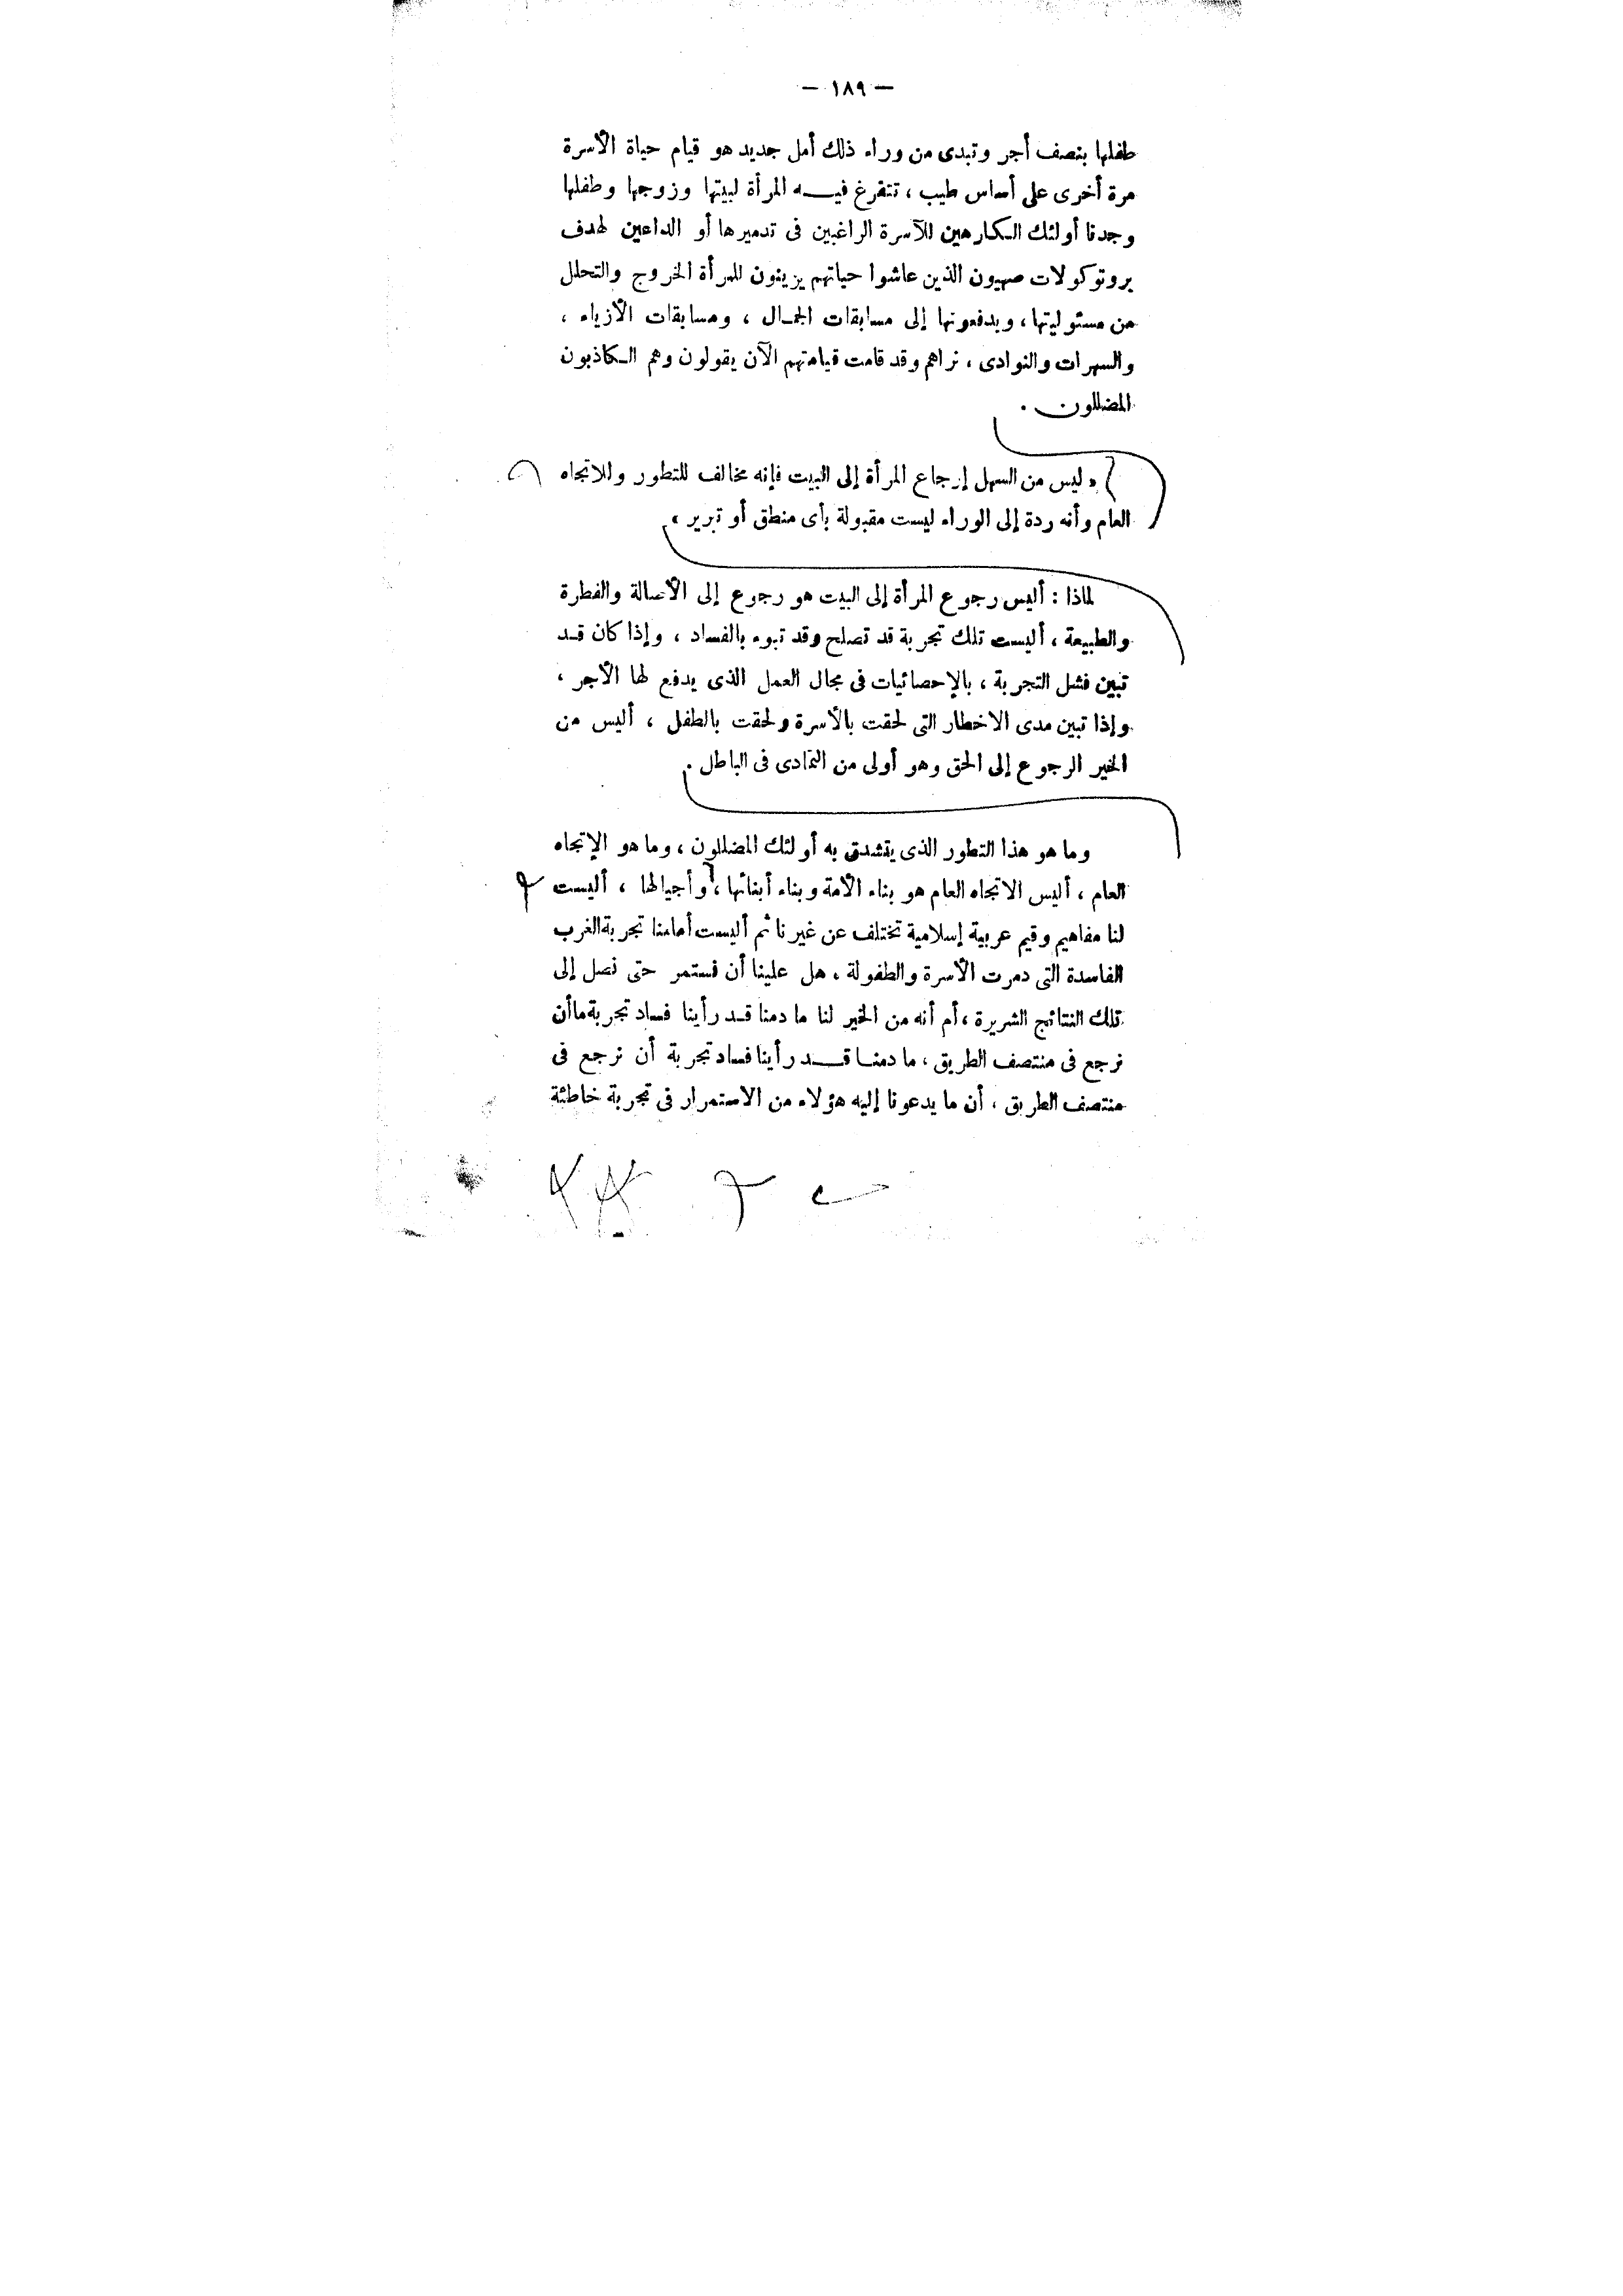 — ١٨٩ —
طفلها بنصف أجر وتبدى من وراء ذلك أمل جديد هو قيام حياة الأسرة
مرة أخرى على أساس طيب ، تتفرغ فيه المرأة لبيتها وزوجها وطفلها
وجدنا أولئك الكارهين للأسرة الراغبين فى تدميرها أو الداعين لهدف
بروتوكولات صهيون الذين عاشوا حياتهم يزينون للمرأة الخروج والتحلل
من مسئوليتها ، ويدفعونها إلى مسابقات الجمال ، ومسابقات الأزياء ،
والسهرات والنوادى ، نراهم وقد قامت قيامتهم الآن يقولون وهم الكاذبون
المضللون .
« ليس من السهل إرجاع المرأة إلى البيت فإنه مخالف للتطور وللاتجاه
العام وأنه ردة إلى الوراء ليست مقبولة بأى منطق أو تبرير »
لماذا : أليس رجوع المرأة إلى البيت هو رجوع إلى الأصالة والفطرة
والطبيعة ، أليست تلك تجربة قد تصلح وقد تبوء بالفساد ، وإذا كان قد
تبين فشل التجربة ، بالإحصائيات فى مجال العمل الذى يدفع لها الأجر ،
وإذا تبين مدى الاخطار التى لحقت بالأسرة ولحقت بالطفل ، أليس من
الخير الرجوع إلى الحق وهو أولى من التمادى فى الباطل .
وما هو هذا التطور الذى يتشدق به أولئك المضللون ، وما هو الإتجاه
العام ، أليس الاتجاه العام هو بناء الأمة وبناء أبنائها ، وأجيالها ، أليست
لنا مفاهيم وقيم عربية إسلامية تختلف عن غيرنا ثم أليست أمامنا تجربة الغرب
الفاسدة التى دمرت الأسرة والطفولة ، هل علينا أن نستمر حتى نصل إلى
تلك النتائج الشريرة ، أم أنه من الخير لنا ما دمنا قد رأينا فساد تجربة ما أن
نرجع فى منتصف الطريق ، ما دمنا قد رأينا فساد تجربة أن نرجع فى
منتصف الطريق ، أن ما يدعونا إليه هؤلاء من الاستمرار فى تجربة خاطئة